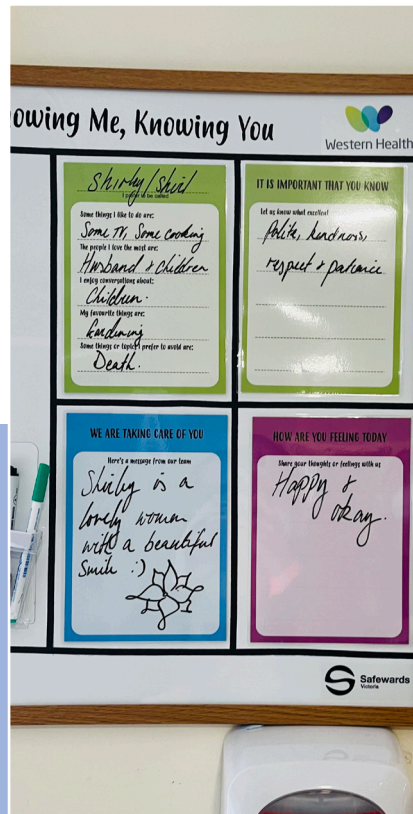 owing Me, Knowing You
Western Health
Shirley/Shirl
I prefer to be called
Some things I like to do are:
Some TV, Some cooking
The people I love the most are:
Husband & Children
I enjoy conversations about:
Children.
My favourite things are:
Gardening
Some things or topics I prefer to avoid are:
Death.
IT IS IMPORTANT THAT YOU KNOW
Let us know what excellent
Polite, kindness,
respect & patience
WE ARE TAKING CARE OF YOU
Here's a message from our team
Shirley is a
lovely women
with a beautiful
Smile :)
HOW ARE YOU FEELING TODAY
Share your thoughts or feelings with us
Happy &
okay.
Safewards
Victoria